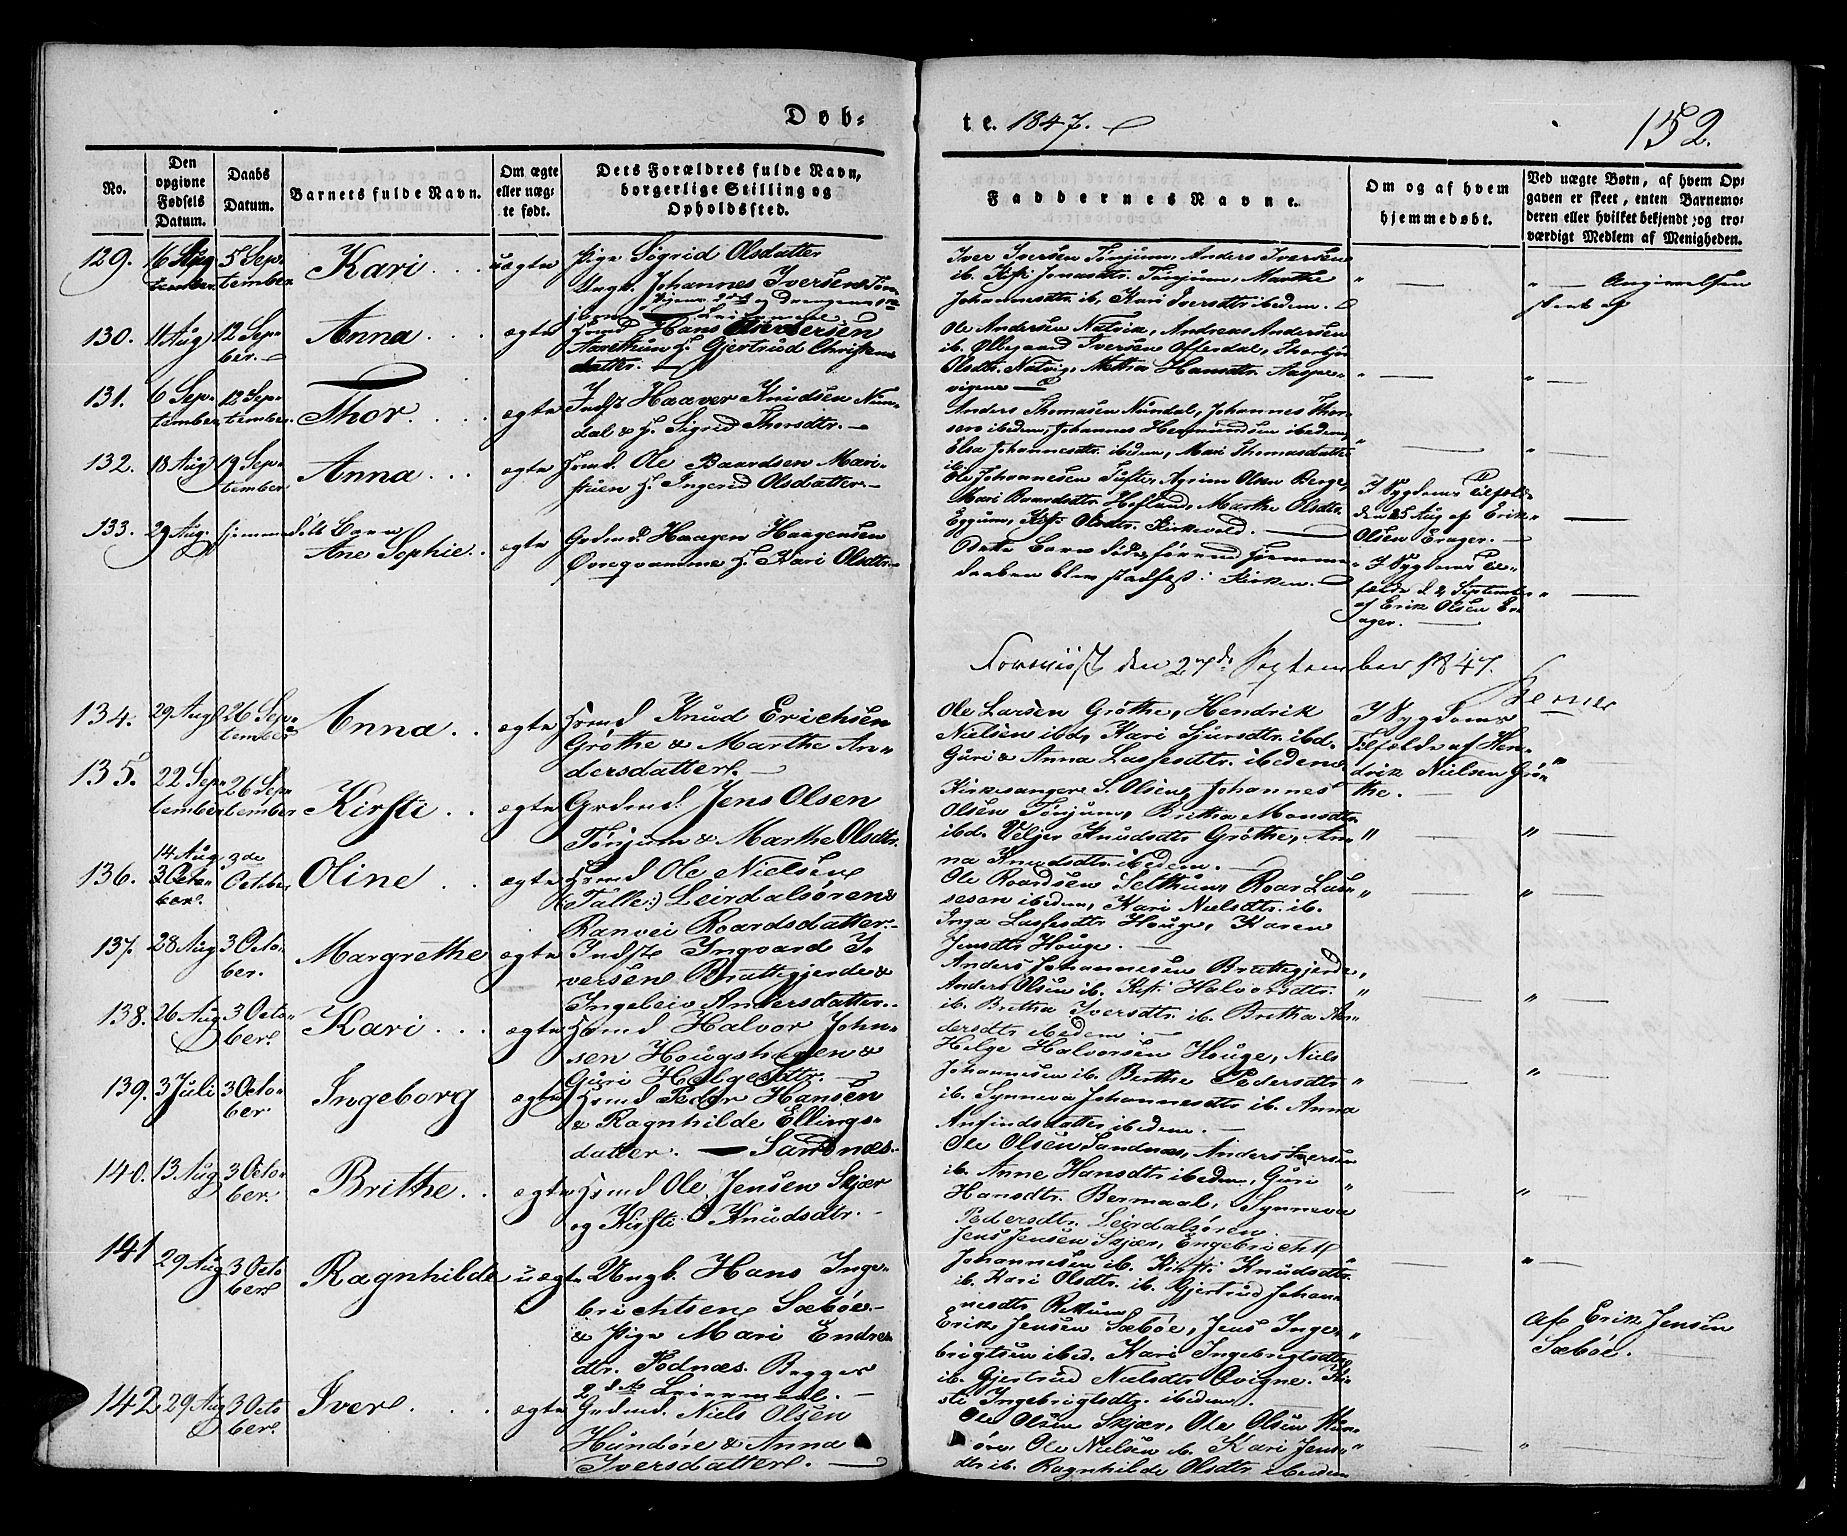 Døb-
te. 1847.
152.
No.
Den opgivne Fødsels Datum.
Daabs Datum.
Barnets fulde Navn.
Om ægte eller uæg-te født.
Dets Forældres fulde Navn, borgerlige Stilling og Opholdssted.
Faddernes Navne.
Om og af hvem hjemmedøbt.
Ved uægte Børn, af hvem Op-gaven er skeet, enten Barnemo-deren eller hvilket bekjendt og tro-værdigt Medlem af Menigheden.
129. 16 Aug 5 Sep-tember Kari uægte Pige Sigrid Olsdatter
Ungk. Johannes Iversen
Iver Iversen Tønjum, Anders Iversen
ib. Kisti Jonasdtr. Tønjum, Marthe
Johannesdtr ib, Kari Iversdtr ibedem.
Angivelsen
skeet af
130. 11 Aug 12 Sep-ber. Anna ægte Hans
Aarethun & H. Gjertrud Christens
datter.
Ole Andersen Natvik, Andreas Andersen
ib. Øllegaard Iversen Offerdal,
Olsdtr. Natvig, Metha Hansdtr. Aaspe-
vigene
131. 6 Sep-tember 12 Sep-tember. Thor ægte Indst Haaver Knudsen Nun-
dal & H. Sigrid Thorsdtr.
Anders Thomasen Nundal, Johannes Thor-
sen ibedem, Johannes Hermundsen ibedem,
Elsa Johannesdtr ibedem, Mari Thomasdatter
ib.
132. 18 Aug 19 Sep-tember Anna ægte Hsmd. Ole Baardsen Mari-
stuen H. Ingerid Olsdatter.
Ole Johannesen Tufte, Agrim Olsen Berge,
Mari Baardsdtr. Hegland, Marthe Olsdtr.
Eggum, Kisti Olsdtr. Kirkevold.
I Sygdoms Tilfælde
den 25 Aug af Erik
Olsen Erager.
133. 29 Aug. hjemme døbt Barn
Ane Sophie. ægte Grdmd. Haagen Haagensen
Øvreqvamme H. Kari Olsdtr.
Dette Barn døde førend Hjemme-
daaben blev stadfæst i Kirken.
I Sygdoms Til-
fælde d 2 September
af Erik Olsen Er-
ager.
Forevist den 27de September 1847.
134. 29 Aug 26 Sep-tember Anna ægte Hsmd Knud Erichsen
Grøthe & Marthe An-
dersdatter.
Ole Larsen Grøthe, Hendrik
Nielsen ibd, Kari Sjursdtr. ibd.
Guri & Anna Lassesdtr. ibedem
I Sygdoms
Tilfælde af Hen-
drik Nielsen Grø-
the.
135. 22 Sep-tember 26 Sep-tember Kirsti ægte Grdmd. Jens Olsen
Tønjum & Marthe Olsdtr.
Kirkesanger S. Olsen, Johannes
Olsen Tønjum, Britha Monsdtr
ibd. Vøljer Knudsdtr Grøthe, An-
na Knudsdtr. ibedem.
136. 14 Aug 3de October Oline ægte Hsmd Ole Nielsen
(Talle) Leirdalsøren &
Ranvei Roardsdatter.
Ole Roardsen Selthun, Roar Las-
sesen ibedem, Kari Nielsdtr. ib.
Inga Lassesdtr Houge, Karen
Jensdtr Houge.
137. 28 Aug 3 Octo-ber. Margrethe ægte Indst Ingvard I-
versen Brattegjerde &
Ingeleiv Andersdatter.
Anders Johannesen Brattegjerde,
Anders Olsen ib. Kisti Halvorsdtr.
ib. Britha Iversdtr ib. Britha An-
dersdtr ibedem
138. 26 Aug 3 Octo-ber Kari ægte Hsmd Halvor John-
sen Hougshagen &
Guri Helgesdtr.
Helge Halvorsen Houge, Niels
Johannesen ib. Berthe Pedersdtr
ib. Synneva Johannesdtr ib. Anna
Anfindsdatter ibedem.
139. 3 Juli 3 Octo-ber Ingeborg ægte Hsmd Peder Hansen
& Ragnhilde Ellings-
datter. — Sandnæs.
Ole Olsen Sandnæs, Anders Iversen
ib. Anne Hansdtr ibedem, Guri
Hansdtr. Bermaal, Synneva
Pedersdtr. Leirdalsøren.
140. 13 Aug 3 Octo-ber. Brithe ægte Hsmd Ole Jensen Skjær
og Kirsti Knudsdtr.
Jens Jensen Skjær, Engebricht
Johannesen ib. Kirsti Knudsdtr.
ib. Kari Olsdtr. ib. Gjertrud Johan-
nesdtr Rekum
141 29 Aug 3 Octo-ber Ragnhilde uægte Ungk. Hans Inge-
brichtsen Sæbøe
& Pige Mari Endre-
dtr. Fodnæs. Begges
2det Leiermaal.
Erik Jensen Sæbøe, Jens Inge-
brigtsen ibed. Kari Ingebrigtsdtr
ib. Gjertrud Nielsdtr Qvigne. Ki-
sti Ingebrigtsdtr. ibedem.
Af Erik Jensen
Sæbøe.
142 29 Aug 3 Octo-ber Iver ægte Grdmd. Niels Olsen
Hundøre & Anna
Iversdatter.
Ole Olsen Skjær, Ole Olsen Hun-
døre, Ole Nielsen ib. Kari Jens-
dtr ib. Ragnhilde Olsdtr ibedem